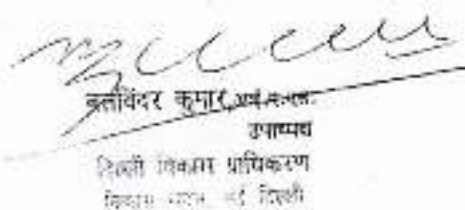 बलविंदर कुमार, आई.ए.एस.
उपाध्यक्ष
दिल्ली विकास प्राधिकरण
विकास सदन नई दिल्ली